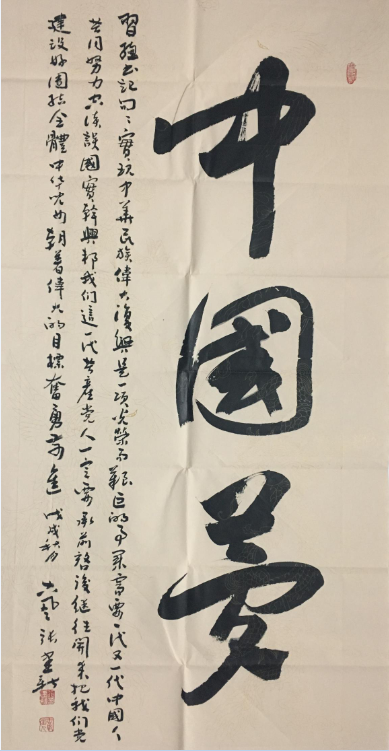 中國夢
習總书記曰實现中華民族偉大復興是一項光榮而艱巨的事業需要一代又一代中國人
共同努力空谈誤國實幹興邦我们這一代共產党人一定要承前啓後继往開来把我们党
建設好團结全體中华兒女朝着偉大的目標奮勇前進 戊戌秋